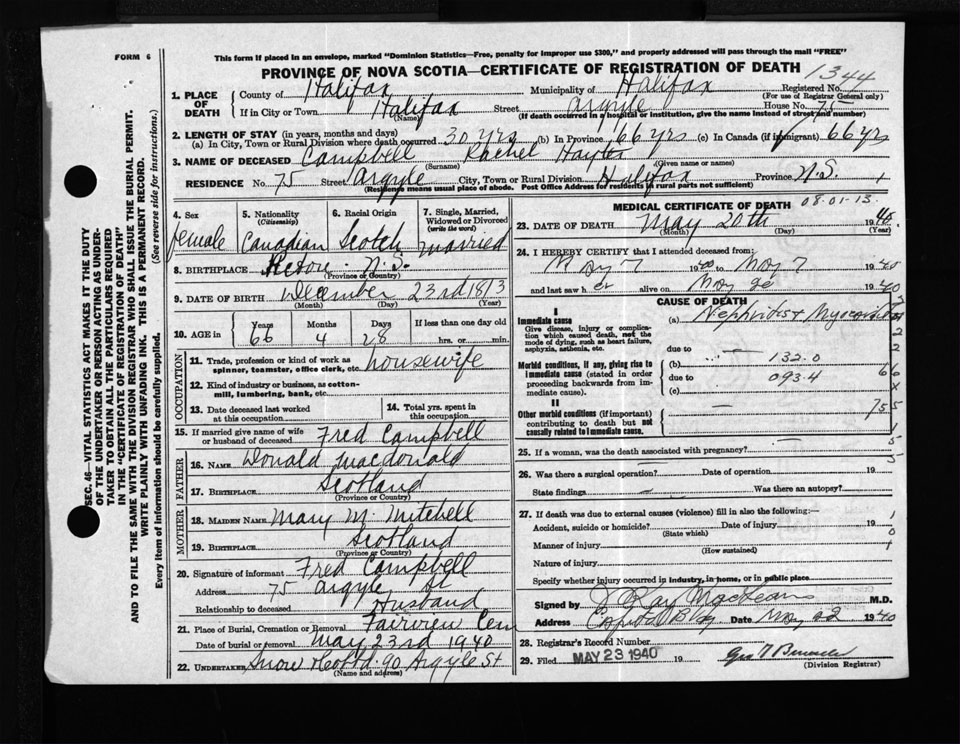 FORM 6
This form if placed in an envelope, marked "Dominion Statistics—Free, penalty for improper use $300," and properly addressed will pass through the mail "FREE"
PROVINCE OF NOVA SCOTIA—CERTIFICATE OF REGISTRATION OF DEATH
1344
Registered No.
(For use of Registrar General only)
1. PLACE OF DEATH
County of Halifax Municipality of Halifax
If in City or Town Halifax Street Argyle House No. 75
(Name) (If death occurred in a hospital or institution, give the name instead of street and number)
2. LENGTH OF STAY (in years, months and days)
(a) In City, Town or Rural Division where death occurred 30 yrs (b) In Province 66 yrs (c) In Canada (if immigrant) 66 yrs
3. NAME OF DECEASED Campbell Rachel
(Surname) (Given name or names)
RESIDENCE No. 75 Street Argyle City, Town or Rural Division Halifax Province N.S.
(Residence means usual place of abode. Post Office Address for residents in rural parts not sufficient)
4. Sex
female
5. Nationality
(Citizenship)
Canadian
6. Racial Origin
Scotch
7. Single, Married, Widowed or Divorced
(write the word)
Married
8. BIRTHPLACE Pictou N.S.
(Province or Country)
9. DATE OF BIRTH December 23rd 1813
(Month) (Day) (Year)
10. AGE in
Years 66
Months 4
Days 28
If less than one day old
hrs. or min.
OCCUPATION
11. Trade, profession or kind of work as spinner, teamster, office clerk, etc. housewife
12. Kind of industry or business, as cotton-mill, lumbering, bank, etc.
13. Date deceased last worked at this occupation
14. Total yrs. spent in this occupation
15. If married give name of wife or husband of deceased Fred Campbell
FATHER
16. NAME Donald Macdonald
17. BIRTHPLACE Scotland
(Province or Country)
MOTHER
18. MAIDEN NAME Mary M. Mitchell
19. BIRTHPLACE Scotland
(Province or Country)
20. Signature of informant Fred Campbell
Address 75 Argyle St
Relationship to deceased Husband
21. Place of Burial, Cremation or Removal Fairview Cem
Date of burial or removal May 23rd 1940
22. UNDERTAKER Snow & Co Ltd. 90 Argyle St
(Name and address)
MEDICAL CERTIFICATE OF DEATH
08-01-13.
23. DATE OF DEATH May 20th 1940
(Month) (Day) (Year)
24. I HEREBY CERTIFY that I attended deceased from:
May 7 1940 to May 7 1940
and last saw her alive on May 20 1940
CAUSE OF DEATH
I
Immediate cause
Give disease, injury or complication which caused death, not the mode of dying, such as heart failure, asphyxia, asthenia, etc.
(a)
due to
Morbid conditions, if any, giving rise to immediate cause (stated in order proceeding backwards from immediate cause).
(b) 132.0
due to 093.4
(c)
II
Other morbid conditions (if important) contributing to death but not causally related to immediate cause.
25. If a woman, was the death associated with pregnancy?
26. Was there a surgical operation? Date of operation 19
State findings Was there an autopsy?
27. If death was due to external causes (violence) fill in also the following:—
Accident, suicide or homicide? Date of injury 19
(State which)
Manner of injury
(How sustained)
Nature of injury
Specify whether injury occurred in industry, in home, or in public place
Signed by J. Kay MacLean M.D.
Address Capitol Bldg Date May 22 1940
28. Registrar's Record Number
29. Filed MAY 23 1940 19
(Division Registrar)
SEC. 46—VITAL STATISTICS ACT MAKES IT THE DUTY
OF THE UNDERTAKER OR PERSON ACTING AS UNDER-
TAKER TO OBTAIN ALL THE PARTICULARS REQUIRED
IN THE "CERTIFICATE OF REGISTRATION OF DEATH"
AND TO FILE THE SAME WITH THE DIVISION REGISTRAR WHO SHALL ISSUE THE BURIAL PERMIT.
WRITE PLAINLY WITH UNFADING INK. THIS IS A PERMANENT RECORD.
Every item of information should be carefully supplied. (See reverse side for instructions.)